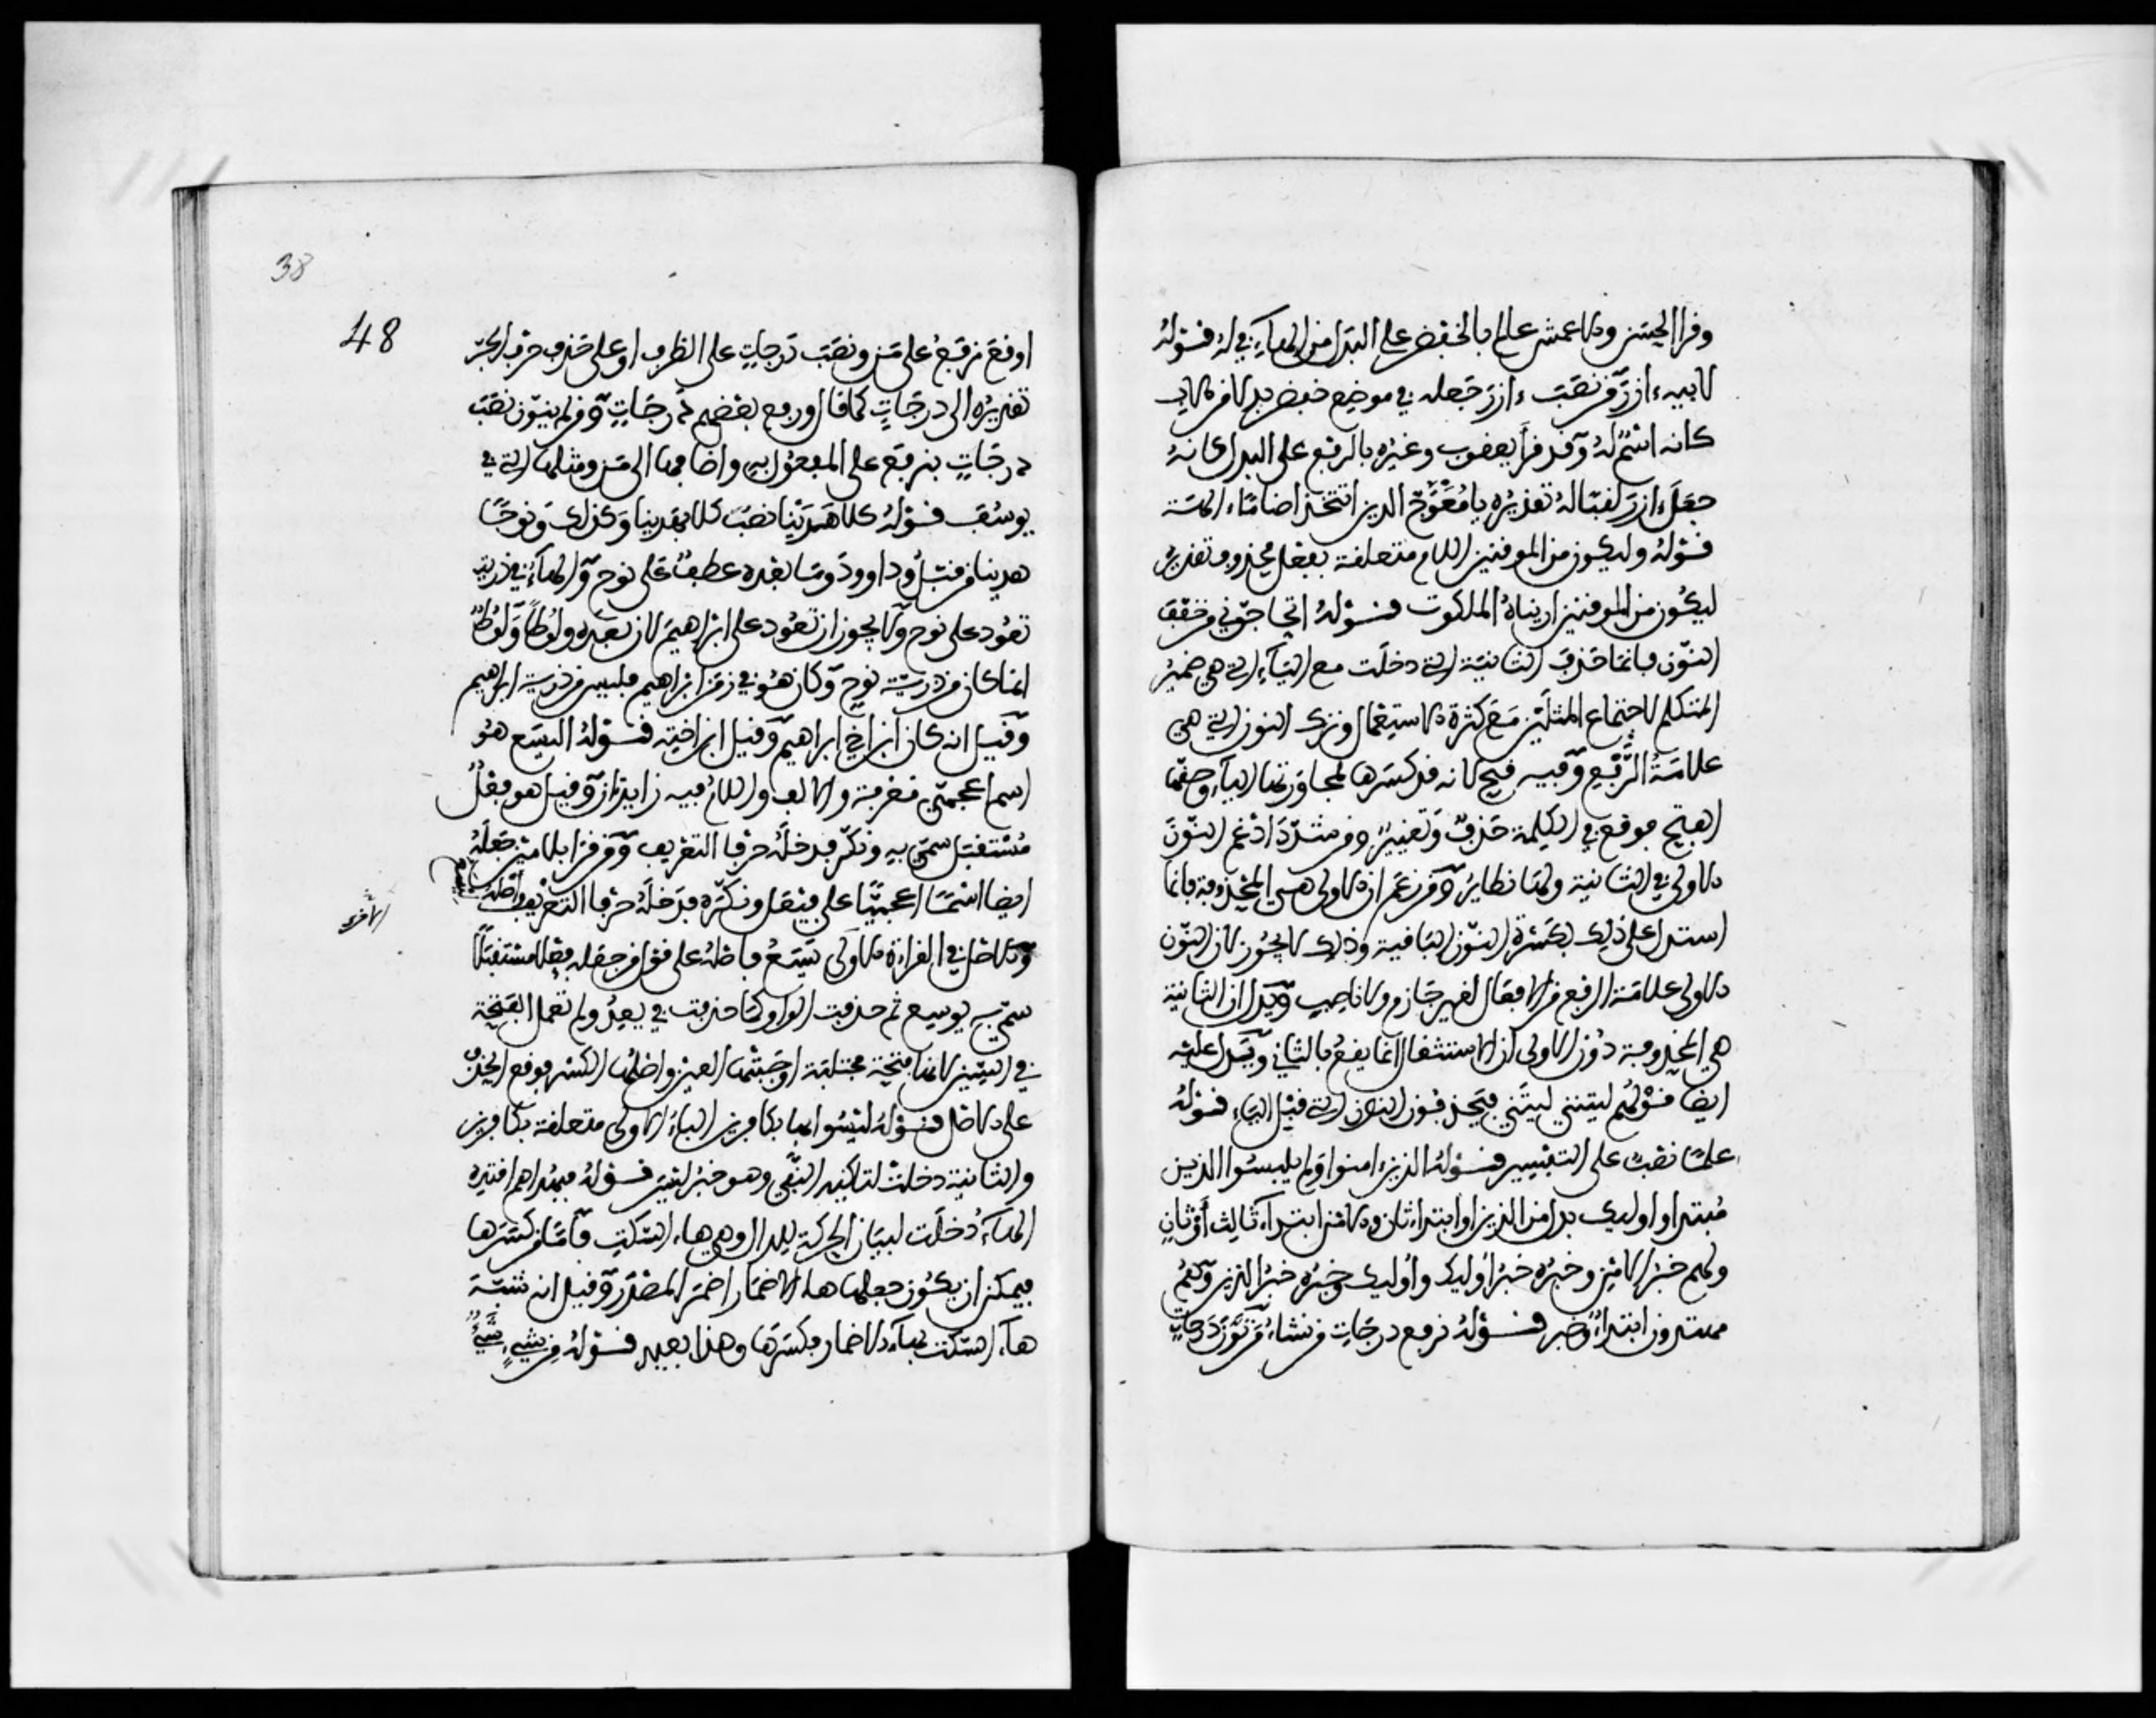 وقرا الحسن والاعمش عالم بالخفض على البدل من الهاء في له قوله
لابيه ءازر من نصب ءازر جعله في موضع خفض بدلا من الاب
كانه اسم له وقد قرأ يعقوب وغيره بالرفع على النداء كانه
جعل ءازر لقبا له تقديره يا معوج الدين اتتخذ اصناما ءالهة
قوله وليكون من الموقنين اللام متعلقة بفعل محذوف تقديره
ليكون من الموقنين اريناه الملكوت قوله اتحاجوني من خفف
النون فانما حذف الثانية التي دخلت مع الياء التي هي ضمير
المتكلم لاجتماع المثلين مع كثرة الاستعمال وترك النون التي هي
علامة الرفع وفيه قبح لانه قد كسرها لمجاورتها الياء وحقها
الفتح فوقع في الكلمة حذف وتغيير ومن شدد ادغم النون
الاولى في الثانية ولها نظاير ومن زعم ان الاولى هي المحذوفة فانما
استدل على ذلك بكسرة النون الباقية وذلك لا يجوز لان النون
الاولى علامة الرفع من الافعال لغير جازم ولا ناصب ويدل ان الثانية
هي المحذوفة دون الاولى ان الاستثقال انما يقع بالثاني ويدل عليه
ايضا قولهم ليتني ليتي فيحذفون النون التي قبل الياء قوله
علما نصب على التفسير قوله الذين ءامنوا ولم يلبسوا الذين
مبتدا واوليك بدل من الذين او ابتداء ثان والامن ابتداء ثالث او ثان
ولهم خبر الامن وخبره خبر اوليك واوليك وخبره خبر الذين وهم
مهتدون ابتداء وخبر قوله نرفع درجات من نشاء من نون درجات
38
48
اوقع نرفع على من ونصب درجات على الظرف او على حذف حرف الجر
تقديره الى درجات كما قال ورفع بعضهم درجات ومن لم ينون نصب
درجات بنرفع على المفعول به واضافها الى من ومثلها التي في
يوسف قوله كلا هدينا نصب كلا بهدينا وكذلك ونوحا
هدينا من قبل وداوود وما بعده عطف على نوح والهاء في ذريته
تعود على نوح ولا يجوز ان تعود على ابراهيم لان بعده ولوطا ولوط
انما كان من ذرية نوح وكان هو في زمن ابراهيم فليس من ذرية ابراهيم
وقيل انه كان ابن اخي ابراهيم وقيل ابن اخته قوله اليسع هو
اسم اعجمي معرفة والالف واللام فيه زايدتان وقيل هو فعل
مستقبل سمي به ونكر فدخله حرفا التعريف ومن قرا بلامين جعله
ايضا اسما اعجميا على فيعل ونكره فدخله حرفا التعريف واصله
الاخرى
والاصل في القراءة الاولى يسع فاصله على قول من جعله فعلا مستقبلا
سمي به يوسع ثم حذفت الواو كما حذفت في يعد ولم تعمل الفتحة
في السين لانها فتحة مجتلبة اوجبتها العين واصلها الكسر فوقع الحذف
على الاصل قوله ليسوا بها بكافرين الباء الاولى متعلقة بكافرين
والثانية دخلت لتاكيد النفي وهو خبر ليس قوله فبهداهم اقتده
الهاء دخلت لبيان الحركة للدال وهي هاء السكت فاما من كسرها
فيمكن ان يكون جعلها هاء الاضمار اضمر المصدر وقيل انه شبه
هاء السكت بهاء الاضمار فكسرها وهذا بعيد قوله من شيء شيء